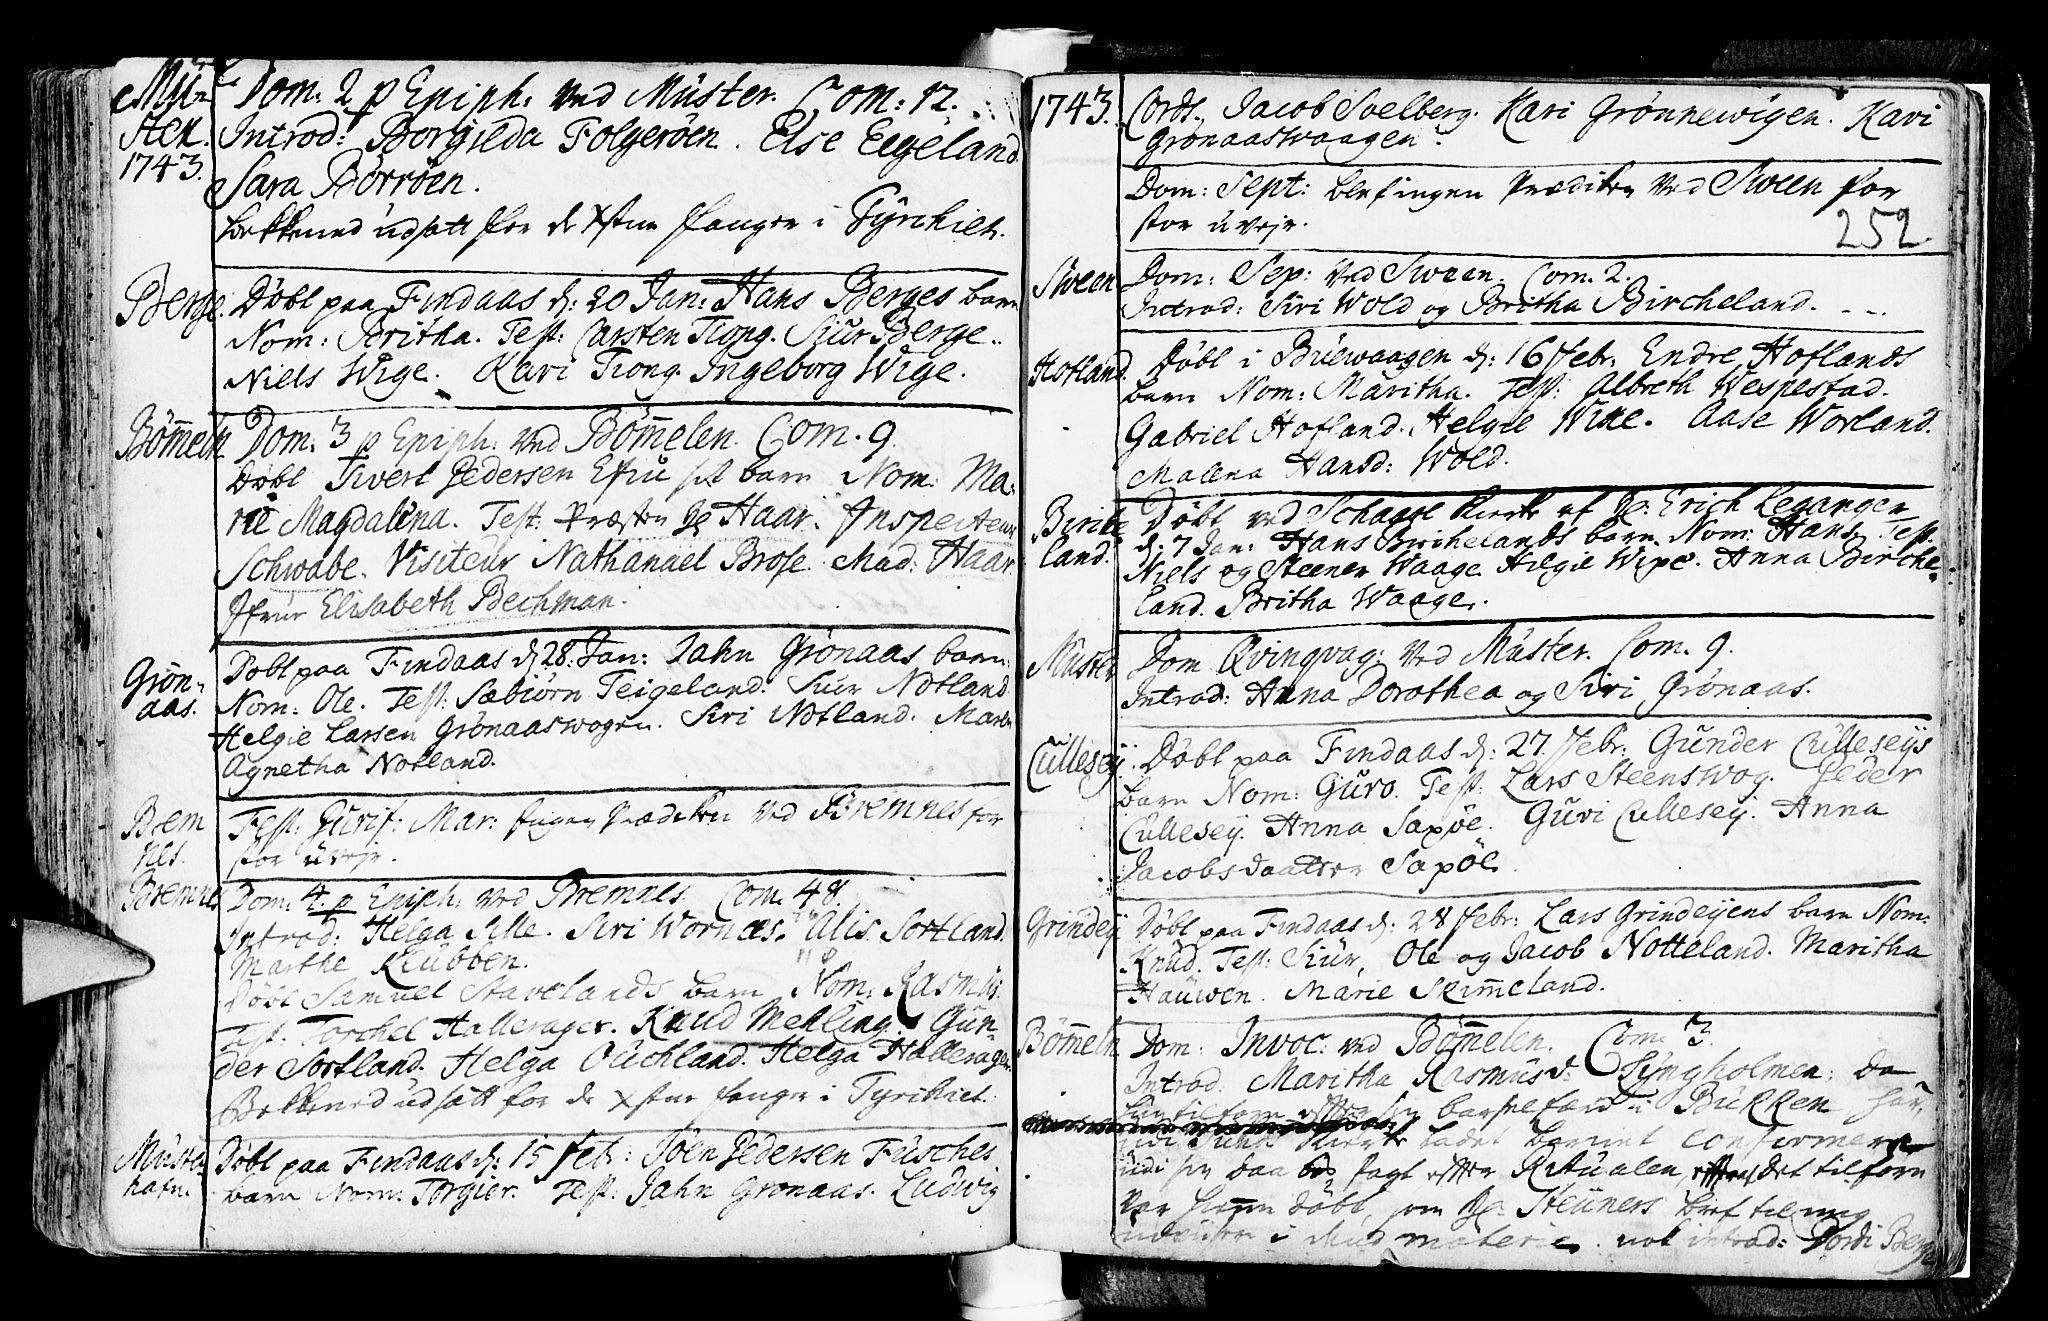 Mü-
ster.
1743.
Dom: 2 p Epiph: ved Müster. Com: 12.
Introd: Borgilda Folgeröen. Else Eegeland
Sara Börröen.
Bekkened udsatt for de Xstne fanger i Tyrchiet.
Berge.
Döbl paa Findaas d: 20 Jan: Hans Berges barn
Nom: Britha. Test: Carsten Tiong. Siur Berge.
Niels Wige. Kari Tiong. Ingeborg Wige.
Bömeln
Dom: 3 p Epiph: ved Bömelen. Com. 9.
Döbl Sivert Pedersen barn Nom: Ma-
rie Magdalena. Test: Præsten Hr Haar. Inspecteur
Schwabe. Visiteur Nathanael Brose. Mad: Haar
Jfrue Elisabeth Bechman.
Grön-
aas.
Döbl paa Findaas d 28: Jan: Jahn Grönaas barn
Nom: Ole. Test: Sæbiörn Teigeland. Siur Notland
Helgie Larsen Grönaaswogen. Siri Notland. Maren
Agnetha Notland.
Brem
nes.
Fest: Purif: Mar: ingen Prædiken ved Bremnes for
stor uvejr.
Bremnes
Dom: 4. p Epiph: ved Bremnes. Com. 48.
Introd: Helga Sille. Siri Wornæs. Alis Sortland.
Marthe Klubben.
Döbl Samuel Stavelands barn Nom: Rasmus.
Test: Torchel Hallerager. Knud Mehling. Gun-
der Sortland. Helga Ouchland. Helga Hallerager.
Bekkened udsatt for de Xstne fanger i Tyrkiet.
Müster
hafn.
Döbl paa Findaas d: 15 Febr: Jöen Pedersen Füsches
barn Nom: Torgier. Test: Jahn Gronaas. Ludwig
1743.
Cords. Jacob Soelberg. Kari Grönnewigen. Kari
Grönaaswaagen.
Dom: Sept: blef ingen Prædiken ved Sween for
stor uvejr.
252
Sween
Dom: Sep: ved Sween. Com. 2.
Introd: Siri Wold og Britha Bircheland.
Hofland.
Döbl i Büewaagen d: 16 Febr. Endre Hoflands
barn Nom: Maritha. Test: Albreth Wespestad.
Gabriel Hofland. Helgie Wixe. Aase Worland.
Malena Hansd: Wold.
Birche
land.
Döbl ved Schaare Kircke af Hr: Erich Leganger
d: 7 Jan: Hans Birchelands barn. Nom: Hans. Test.
Niels og Steener Waage. Helgie Wixe. Anna Birche-
land. Britha Waage.
Müster
Dom Qvinqvag: ved Müster. Com. 9.
Introd: Anna Dorothea og Siri Grönaas.
Cullesey.
Döbl paa Findaas d: 27. Febr: Gunder Culleseys
barn Nom: Guro. Test: Lars Steenswog. Peder
Cullesey. Anna Saxöe. Guri Cullesey. Anna
Jacobsdaatter Saxöe.
Grindey
Döbl paa Findaas d: 28 Febr: Lars Grindeyens barn Nom:
Knud. Test: Siur, Ole og Jacob Notteland. Maritha
Hauwen. Marie Skimeland.
Bömeln
Dom: Invoc: ved Bömelen. Com. 3.
Introd. Maritha Rasmusd: Syngholmen; Da
hun tilforn efter sin barselfærd i Bukken har
ladet barnet confirmere
udi sin daab sagt efter Ritualen, det tilforn
var hjemme döbt, som Hr: Steuners bref til mig
udviser i materie. nok introd: Dordi Berge